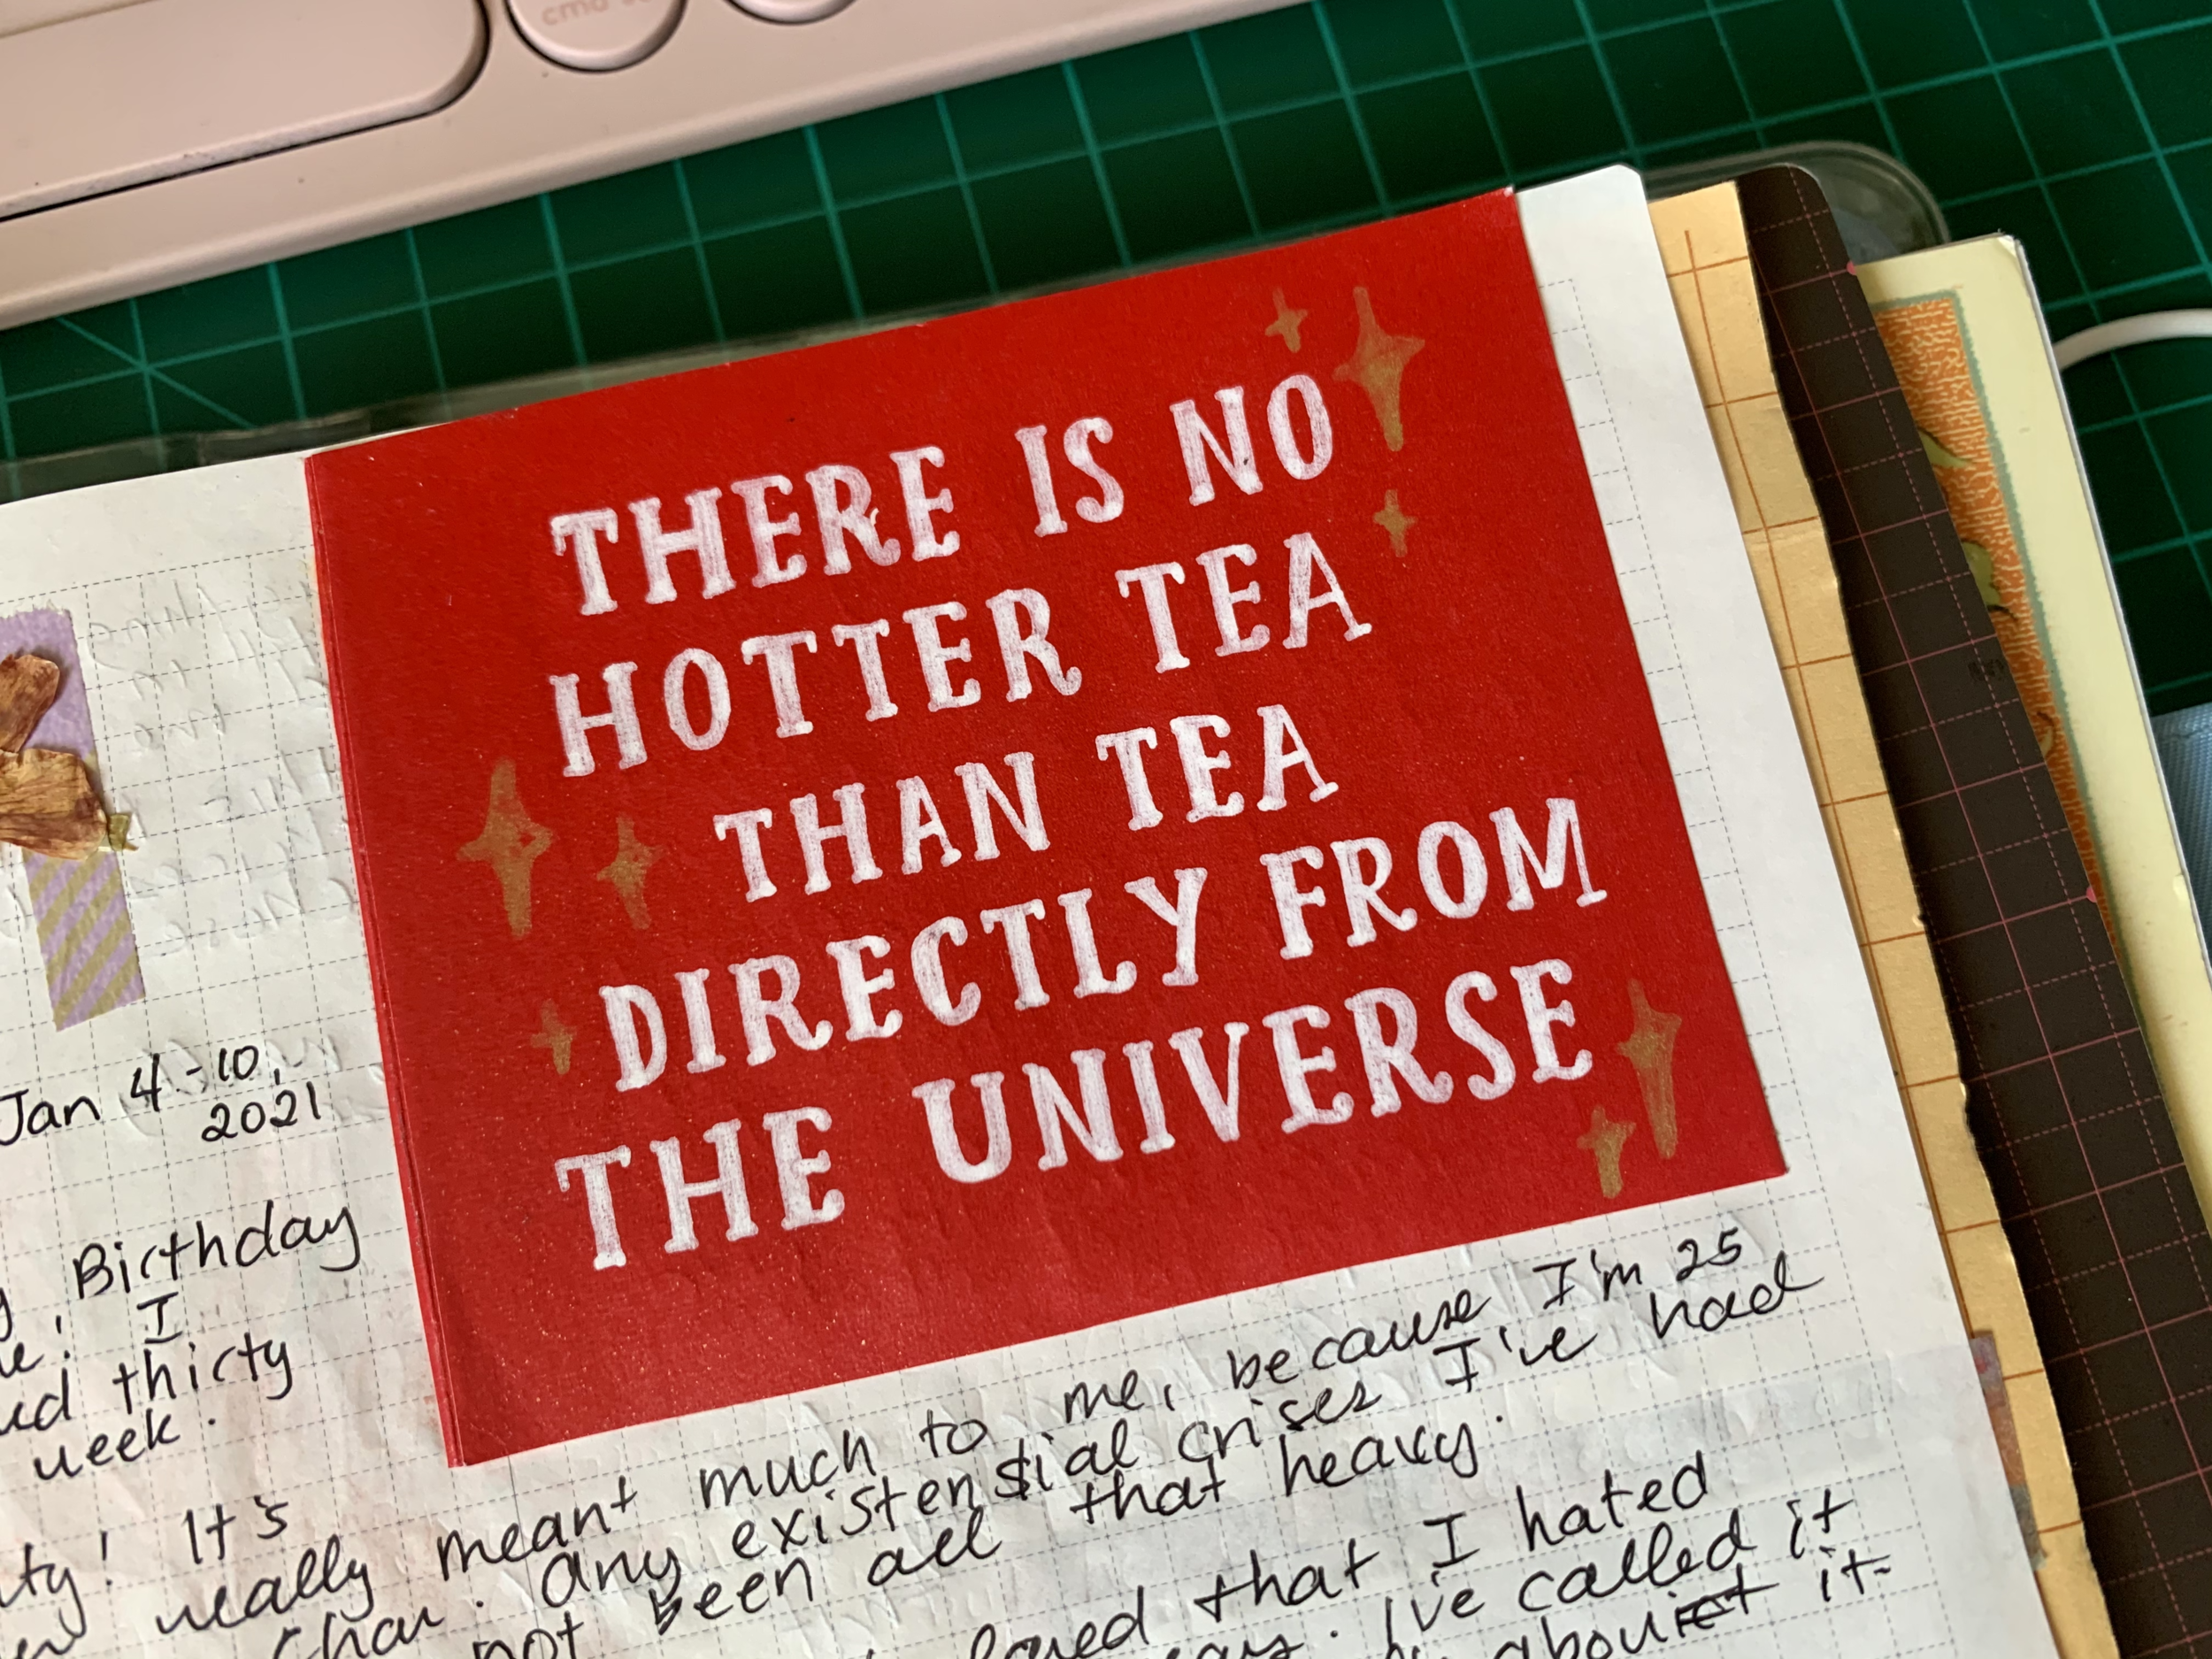 cmd
THERE IS NO
HOTTER TEA
THAN TEA
DIRECTLY FROM
THE UNIVERSE
Jan 4-10,
2021
Birthday
I
thirty
week.
It's
really meant much to me, because I'm 25
char. any existential crises I've had
not been all that heavy.
that I hated
I've called it
it-